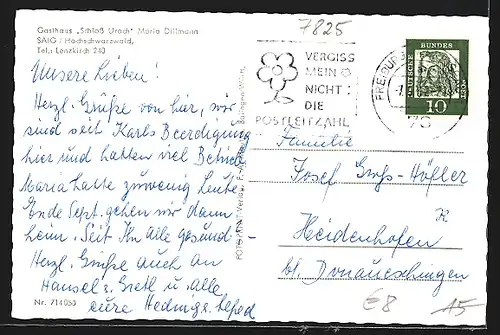 Gasthaus „Schloß Urach" Maria Dillmann
SAIG / Hochschwarzwald,
Tel.: Lenzkirch 240
7825
VERGISS
MEIN
NICHT
DIE
POSTLEITZAHL
FREIBURG
DEUTSCHE BUNDESPOST
10
78
Unsere Lieben!
Herzl. Grüße von hier, wir
sind seit Karls Beerdigung
hier und hatten viel Betrieb
Maria hatte zuwenig Leute
Ende Sept. gehen wir dann
heim. Seit Ihr alle gesund-
Herzl. Grüße auch an
Hansel u. Gretl u. alle
eure Hedwig u.
Nr. 714053
Familie
Josef Groß-Höfler
Heidenhofen
bl. Donaueschingen
E8
A5